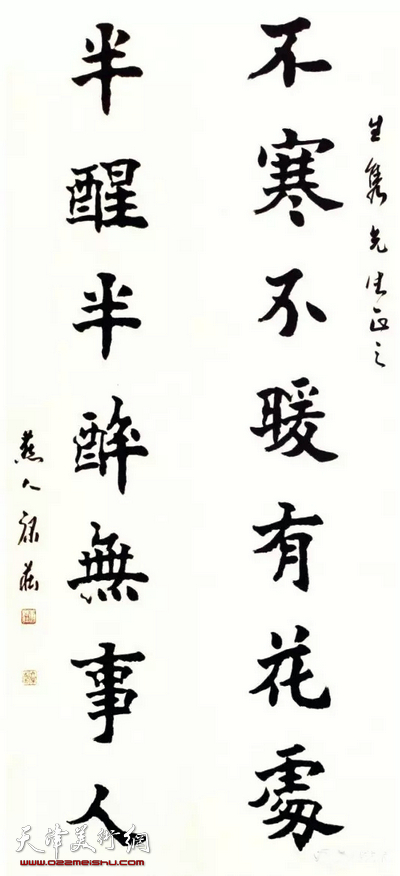 先生正之
不寒不暖有花處
半醒半醉無事人
燕人
天津美術網
www.022meishu.com